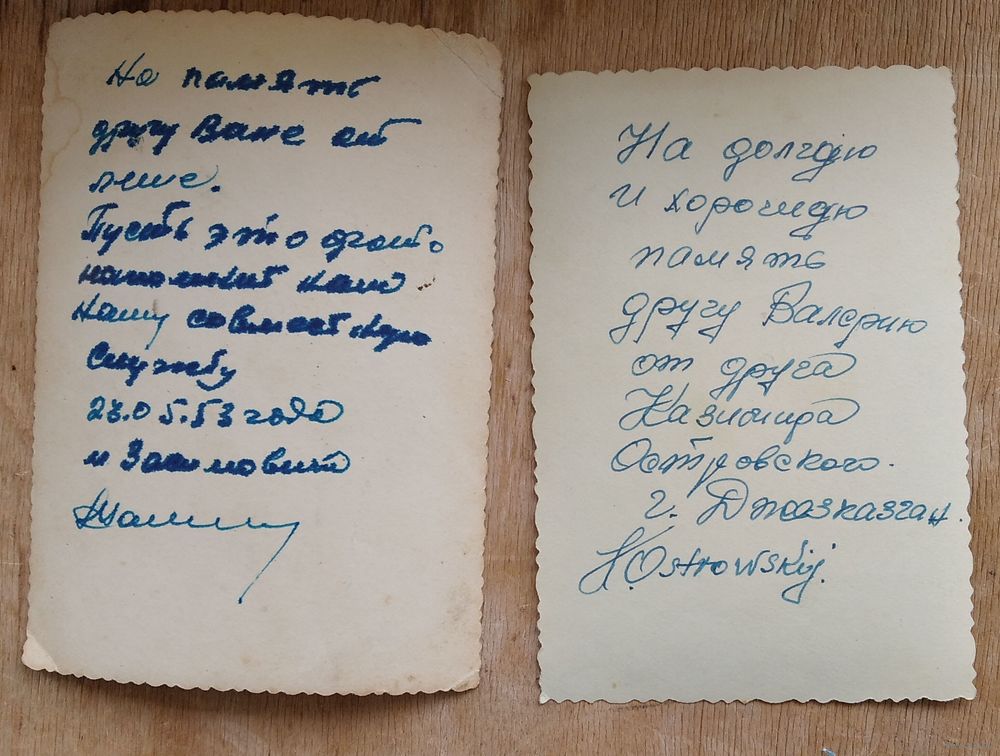 На память
другу Ване от
Пусть это фото
напоминает нам
нашу совместную
службу
23.05.53 года
На долгую
и хорошую
память
другу Валерию
от друга
Казимира
Островского.
г. Джезказган.
K.Ostrowskij.